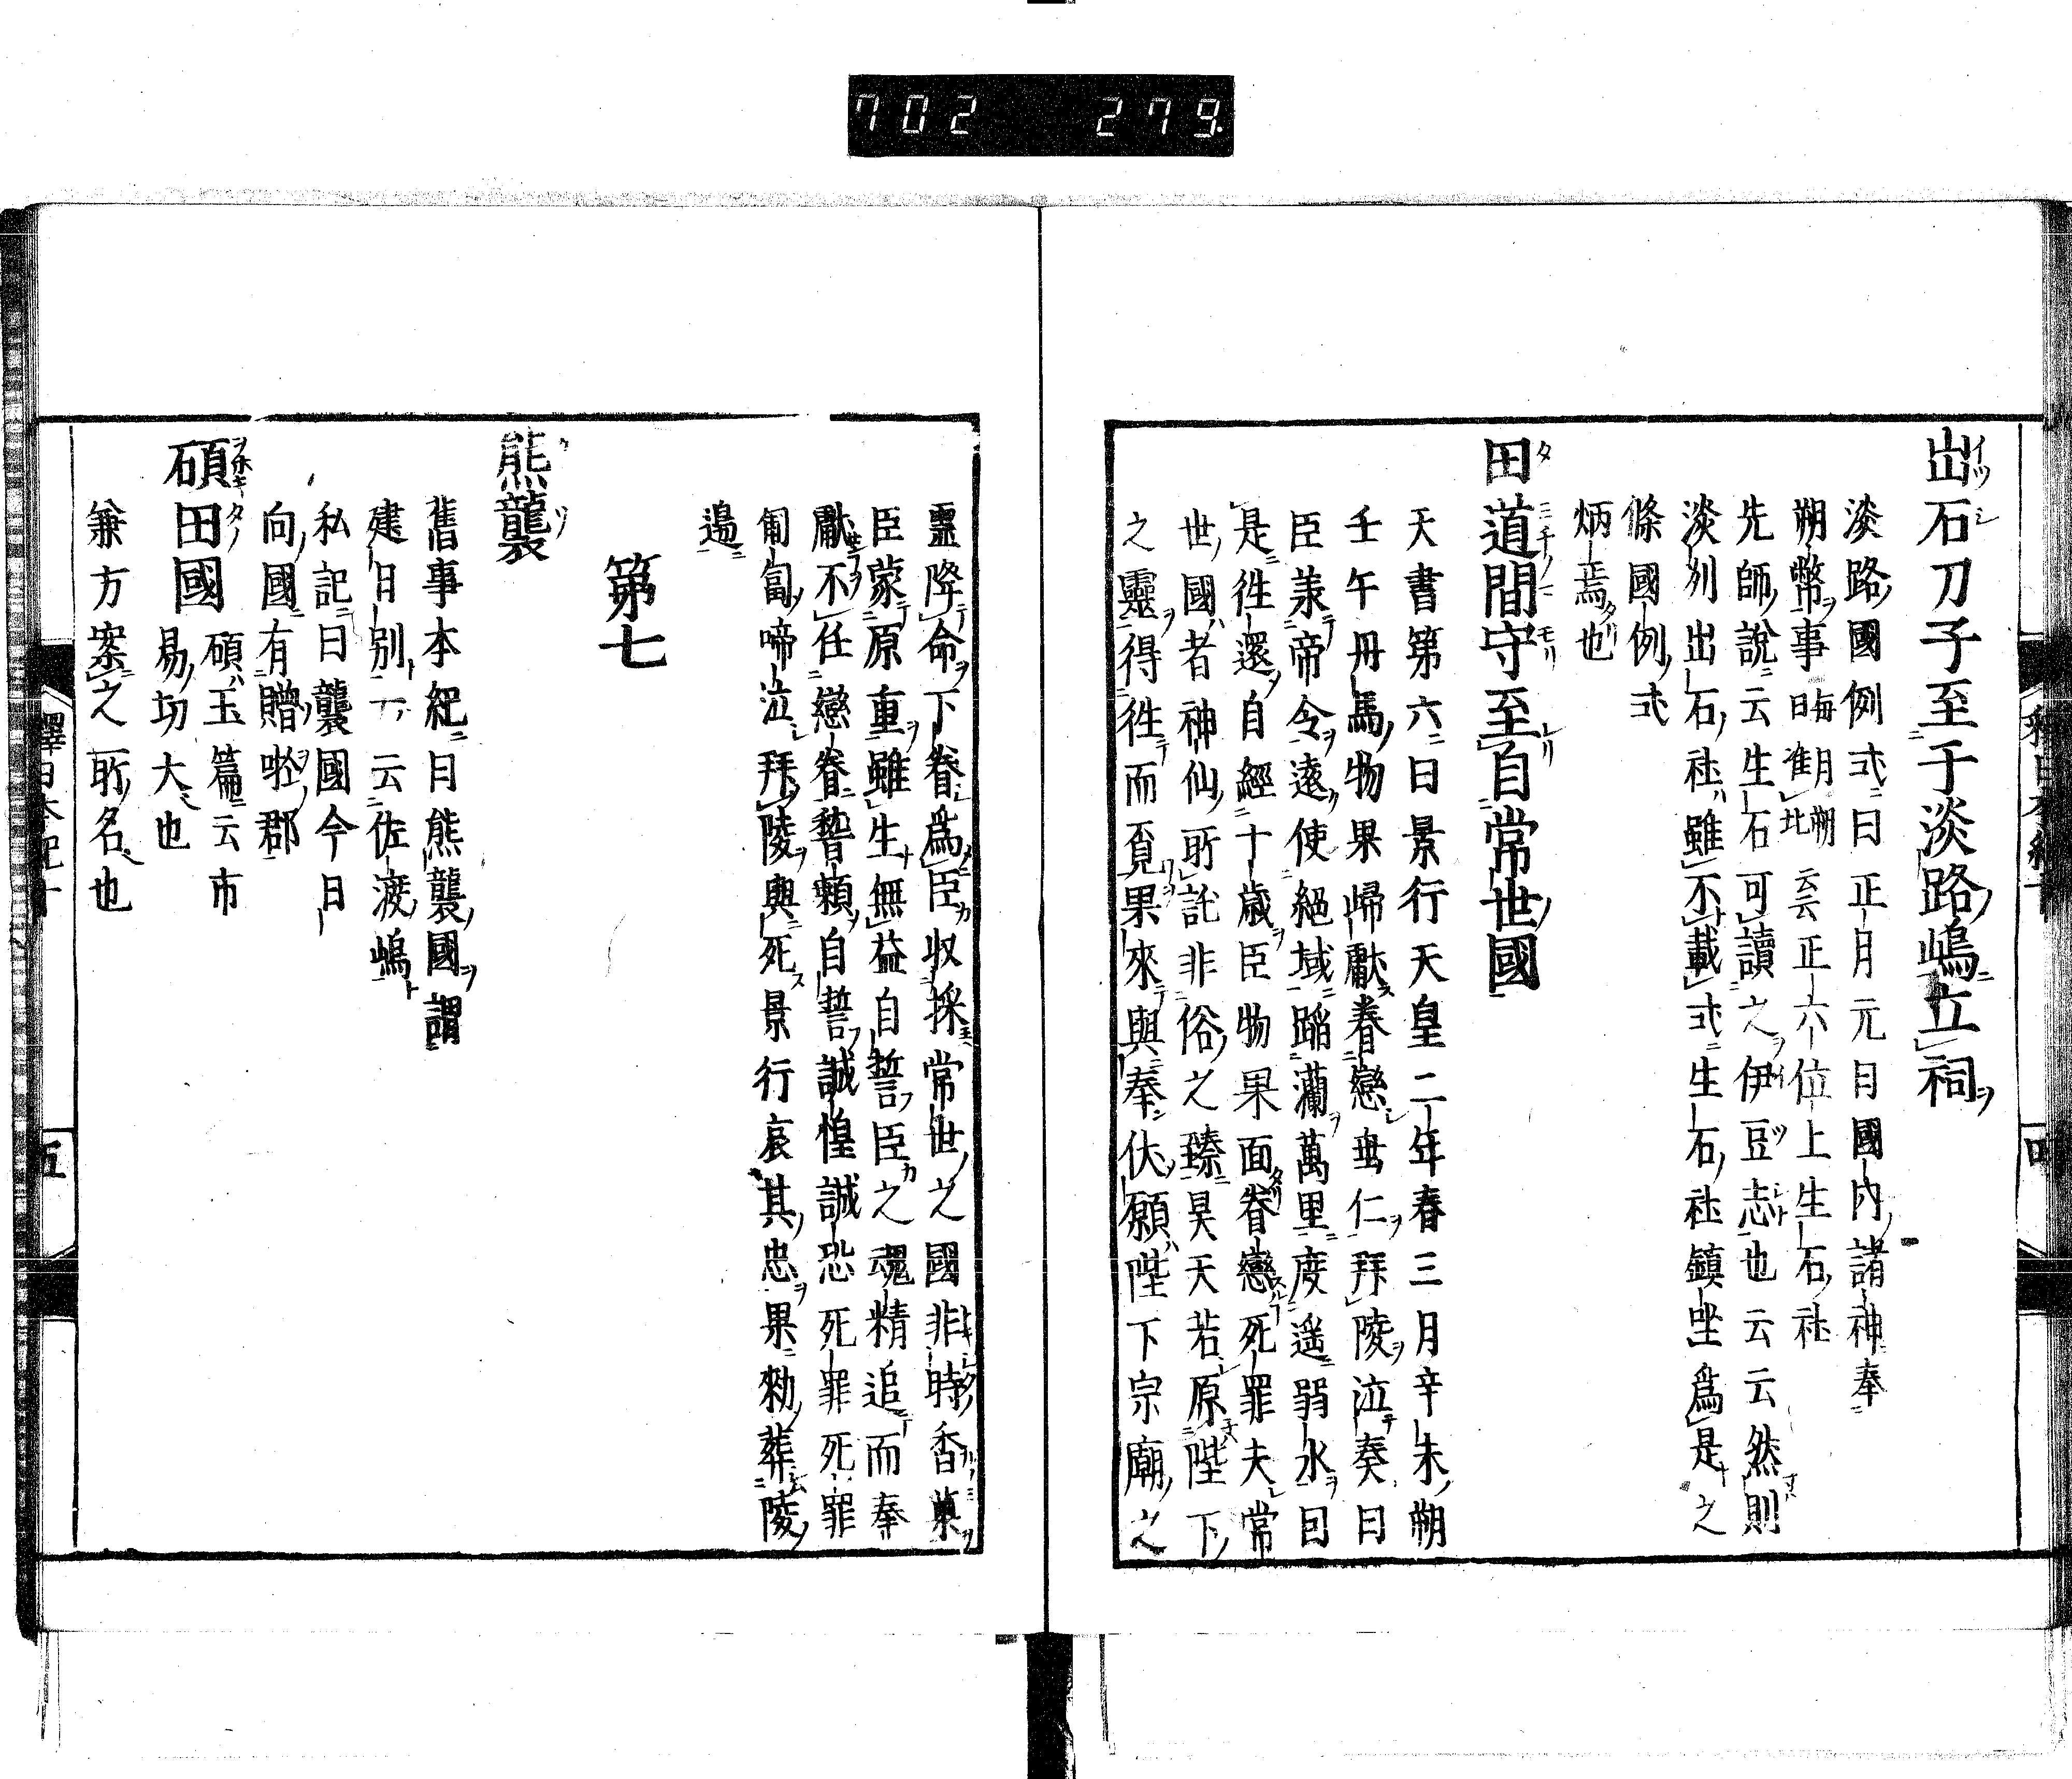 702 279
出石刀子至于淡路嶋立祠
淡路國例式曰正月元日國内諸神奉
朔幣事晦日月朔准此云云正六位上生石社
先師説云生石可讀之伊豆志也云云然則
淡列出石社雖不載式生石社鎮坐爲是之
條國例式
炳焉也
田道間守至自常世國
天書第六曰景行天皇二年春三月辛未朔
壬午丹馬物果歸獻眷戀垂仁拜陵泣奏曰
臣羕帝令遠使絕域蹈瀾萬里度遥弱水曰
是徃還自經十歳臣物果面眷戀死罪夫常
世國者神仙所託非俗之臻昊天若原陛下
之靈得徃而覔果來與奉伏願陛下宗廟之
靈降命下眷爲臣収採常世之國非時香菓
臣蒙原重雖生無益自誓臣之魂精追而奉
獻不任戀眷誓頼自誓誠惶誠恐死罪死罪
匍匐啼泣拜陵與死景行哀其忠果勑葬陵
邉
第七
熊襲
舊事本紀曰熊襲國謂
建日別一云佐渡嶋
私記曰襲國今日
向國有贈唹郡
碩田國
碩玉篇云市
易切大也
兼方案之所名也
釋日本紀十
五